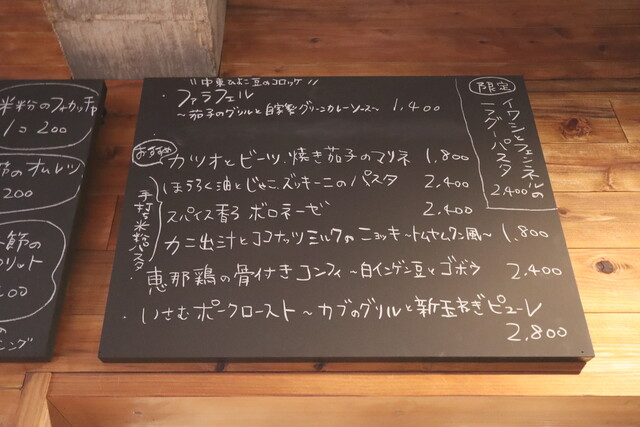 米粉のフォカッチャ
1コ 200
のオムレツ
200
節の
リット
00
の
ニング
"中東ひよこ豆のコロッケ"
・ファラフェル
～茄子のグリルと自家製グリーンカレーソース～ 1,400
おすすめ
・カツオとビーツ、焼き茄子のマリネ 1,800
手打ち米粉パスタ
ほうろく油とじゃこ、ズッキーニのパスタ 2,400
スパイス香る ボロネーゼ 2,400
カニ出汁とココナッツミルクのニョッキ～トムヤムクン風～ 1,800
・恵那鶏の骨付きコンフィ～白インゲン豆とゴボウ 2,400
・いさむポークロースト～カブのグリルと新玉ねぎピューレ
2,800
限定
イワシとフェンネルの
ラグーパスタ
2,400